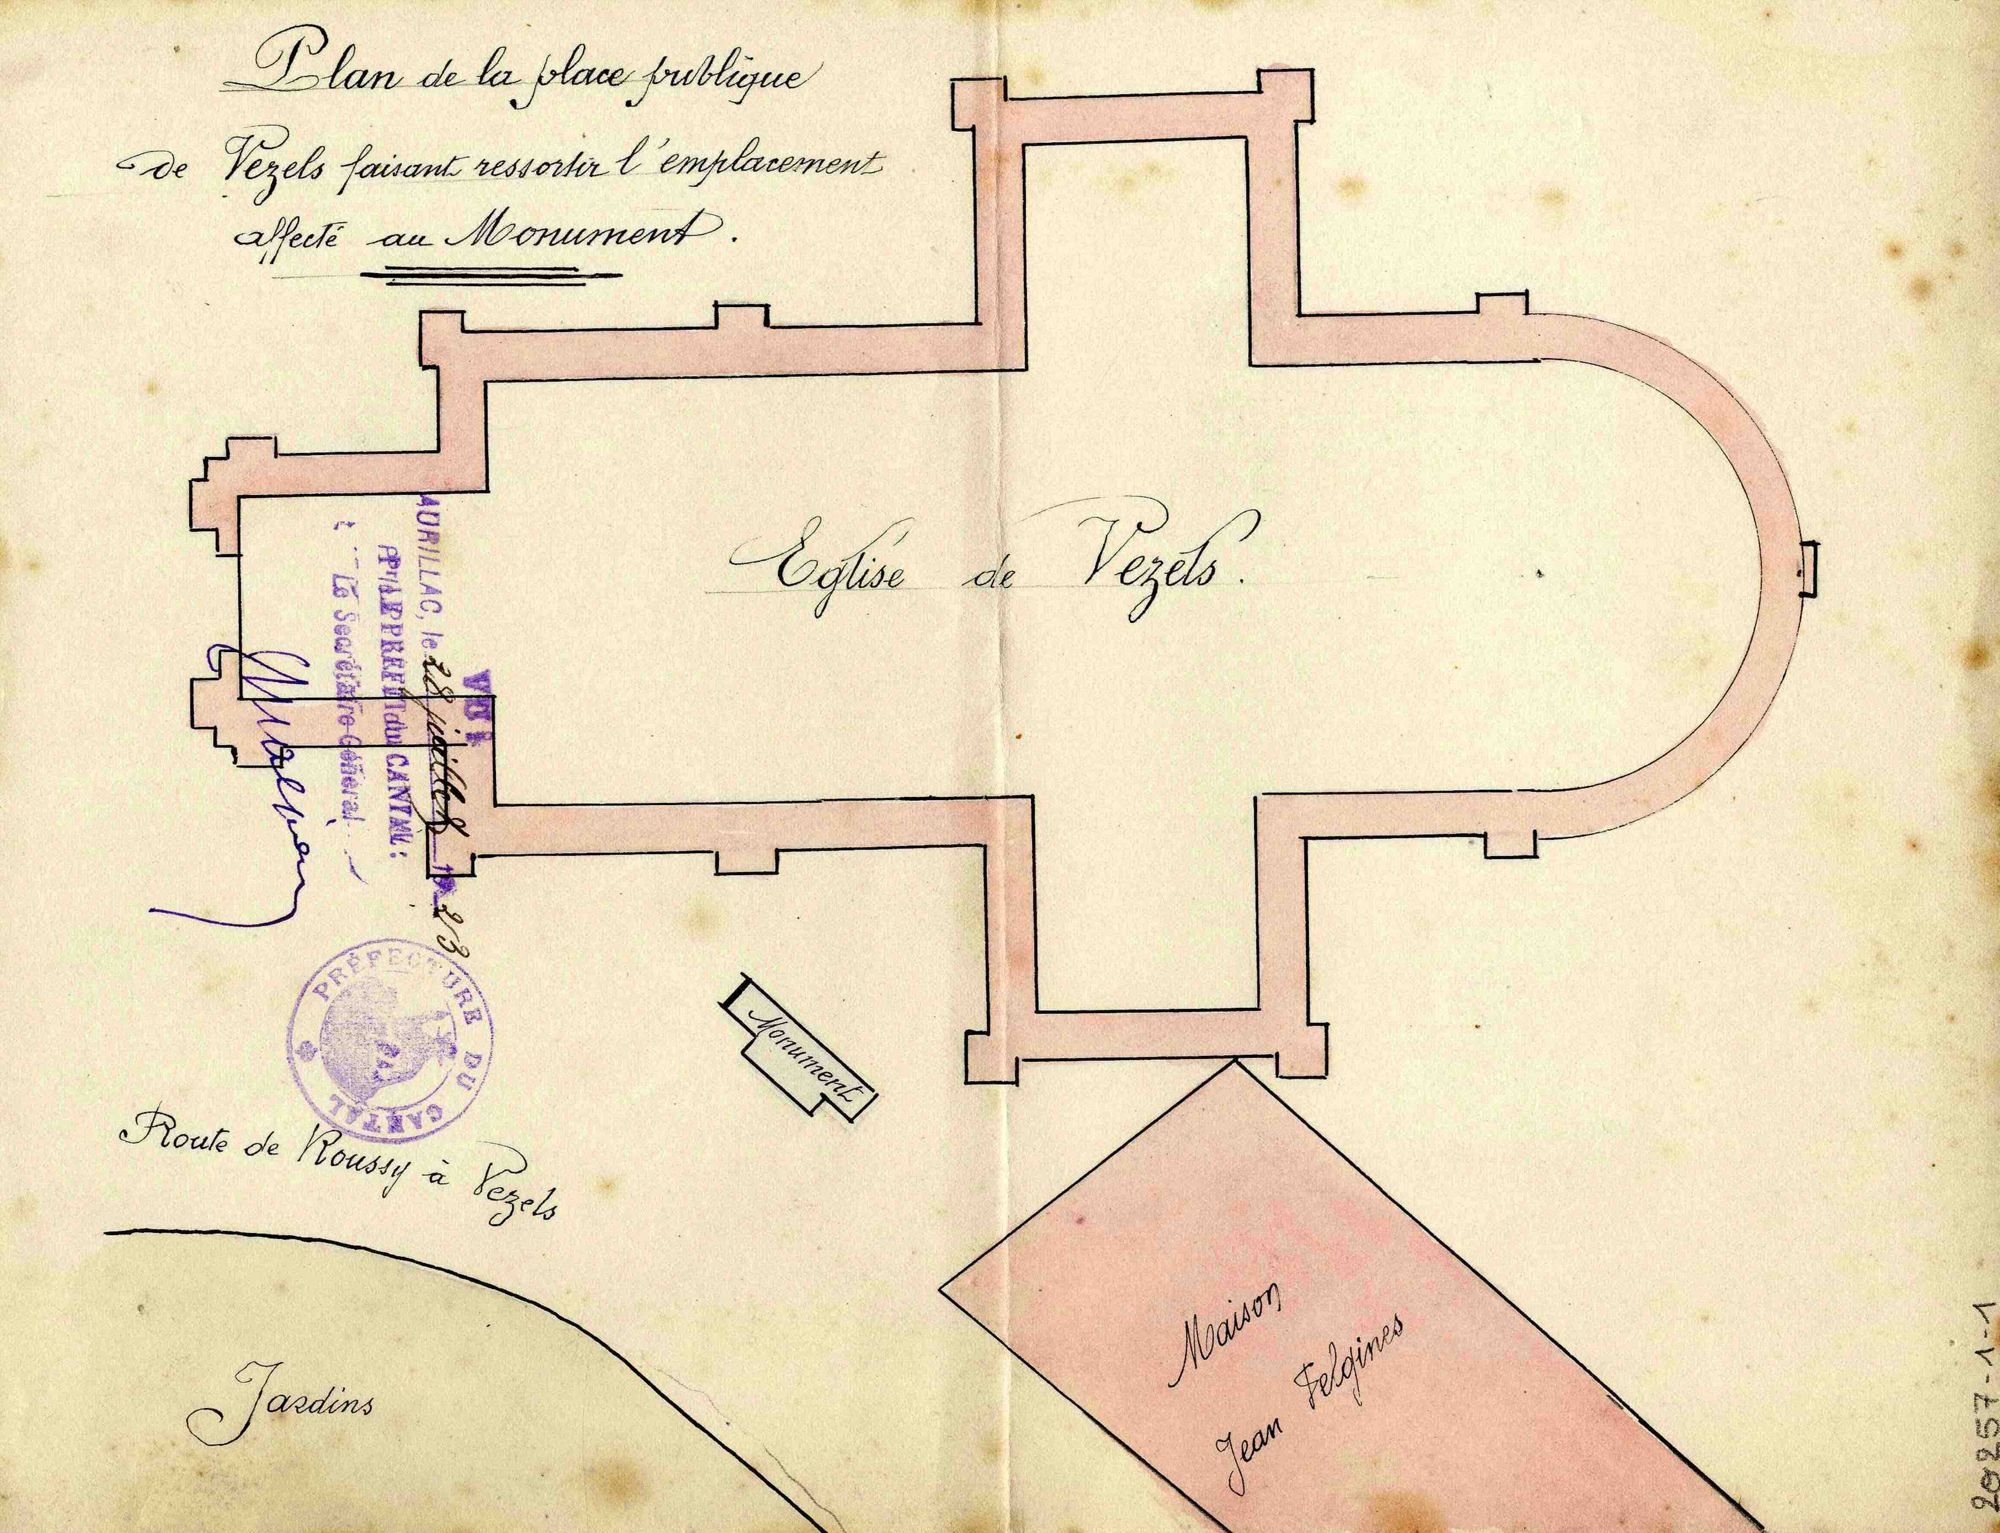 Plan de la place publique
de Vezels faisant ressortir l'emplacement
affecté au Monument.
Eglise de Vezels.
VU :
AURILLAC, le 28 juillet 1923
PR LE PREFET du CANTAL :
Le Secrétaire-Général
PRÉFECTURE DU CANTAL
Monument
Route de Roussy à Vezels
Jardins
Maison
Jean Felgines
20257-1-1